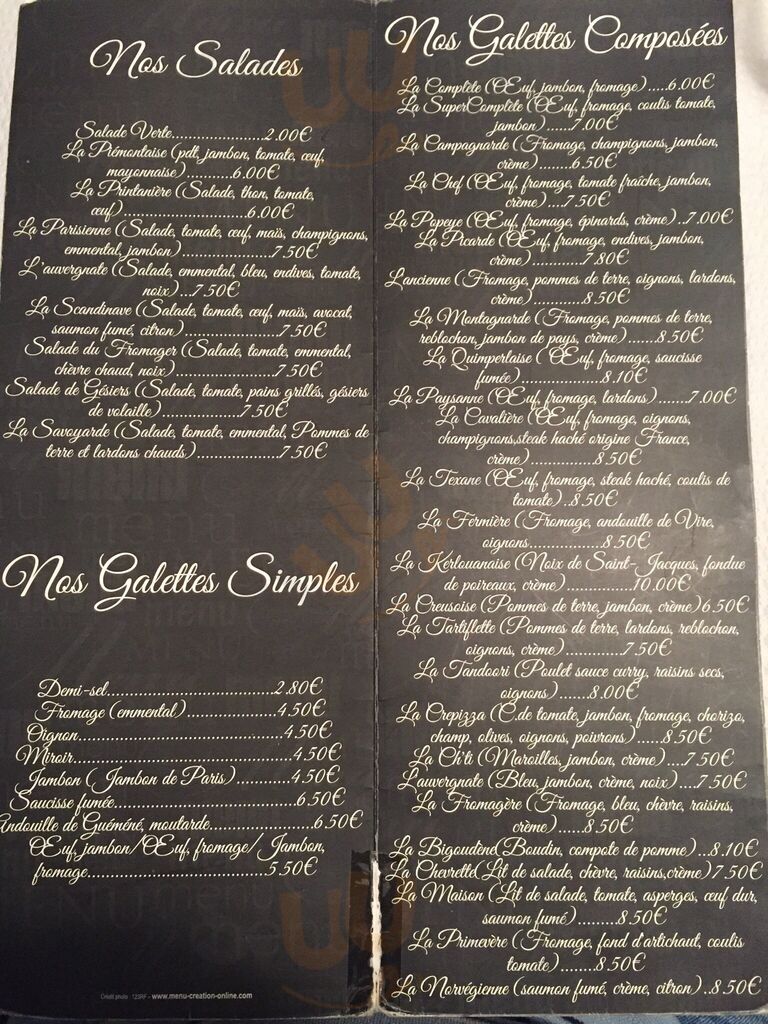 Nos Salades
Salade Verte......................2.00€
La Piémontaise (pdt, jambon, tomate, œuf,
mayonnaise)............6.00€
La Printanière (Salade, thon, tomate,
œuf)............................6.00€
La Parisienne (Salade, tomate, œuf, maïs, champignons,
emmental, jambon)....................7.50€
L'auvergnate (Salade, emmental, bleu, endives, tomate,
noix)...7.50€
La Scandinave (Salade, tomate, œuf, maïs, avocat,
saumon fumé, citron)......................7.50€
Salade du Fromager (Salade, tomate, emmental,
chèvre chaud, noix).......................7.50€
Salade de Gésiers (Salade, tomate, pains grillés, gésiers
de volaille)..................7.50€
La Savoyarde (Salade, tomate, emmental, Pommes de
terre et lardons chauds)...................7.50€
Nos Galettes Simples
Demi-sel.......................................2.80€
Fromage (emmental)....................4.50€
Oignon................................................4.50€
Miroir...................................................4.50€
Jambon (Jambon de Paris).............4.50€
Saucisse fumée..........................................6.50€
Andouille de Guéméné, moutarde........................6.50€
Œuf, jambon/Œuf, fromage/Jambon,
fromage.........................................5.50€
Crédit photo : 123RF - www.menu-creation-online.com
Nos Galettes Composées
La Complète (Œuf, jambon, fromage).....6.00€
La SuperComplète (Œuf, fromage, coulis tomate,
jambon)......7.00€
La Campagnarde (Fromage, champignons, jambon,
crème)..........6.50€
La Chef (Œuf, fromage, tomate fraîche, jambon,
crème)....7.50€
La Popeye (Œuf, fromage, épinards, crème)..7.00€
La Picarde (Œuf, fromage, endives, jambon,
crème).............7.80€
L'ancienne (Fromage, pommes de terre, oignons, lardons,
crème)............8.50€
La Montagnarde (Fromage, pommes de terre,
reblochon, jambon de pays, crème)......8.50€
La Quimperlaise (Œuf, fromage, saucisse
fumée)...................8.10€
La Paysanne (Œuf, fromage, lardons).......7.00€
La Cavalière (Œuf, fromage, oignons,
champignons,steak haché origine France,
crème)..............8.50€
La Texane (Œuf, fromage, steak haché, coulis de
tomate)..8.50€
La Fermière (Fromage, andouille de Vire,
oignons.................8.50€
La Kerlouanaise (Noix de Saint-Jacques, fondue
de poireaux, crème)...............10.00€
La Creusoise (Pommes de terre, jambon, crème)6.50€
La Tartiflette (Pommes de terre, lardons, reblochon,
oignons, crème)..............7.50€
La Tandoori (Poulet sauce curry, raisins secs,
oignons).......8.00€
La Crepizza (C.de tomate, jambon, fromage, chorizo,
champ, olives, oignons, poivrons)......8.50€
La Ch'ti (Maroilles, jambon, crème)....7.50€
L'auvergnate (Bleu, jambon, crème, noix)....7.50€
La Fromagère (Fromage, bleu, chèvre, raisins,
crème)......8.50€
La Bigoudène(Boudin, compote de pomme)...8.10€
La Chevrette(Lit de salade, chèvre, raisins,crème)7.50€
La Maison (Lit de salade, tomate, asperges, œuf dur,
saumon fumé)..........8.50€
La Primevère (Fromage, fond d'artichaut, coulis
tomate)........8.50€
La Norvégienne (saumon fumé, crème, citron)..8.50€